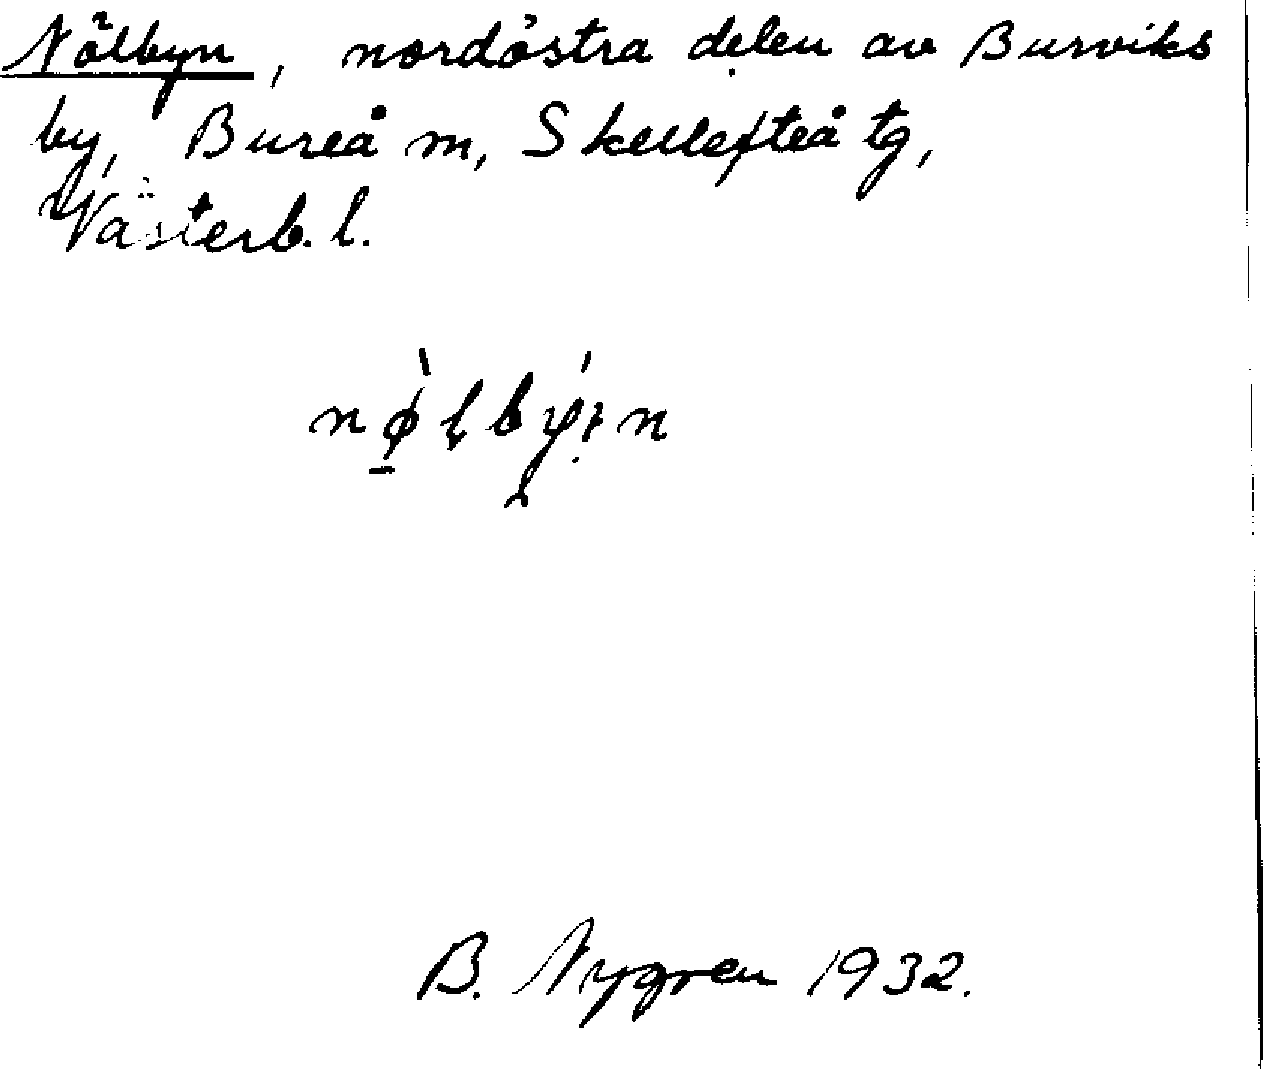 Nölbyn, nordöstra delen av Burviks
by, Bureå m, Skellefteå tg,
Västerb. l.
B. Nygren 1932.